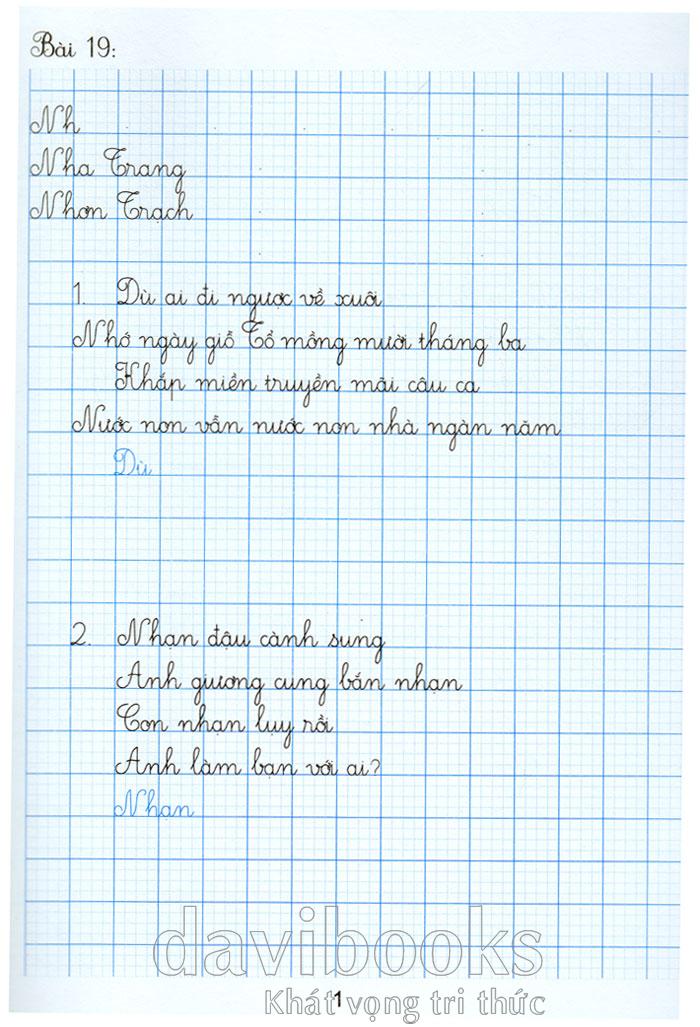 Bài 19:
Nh
Nha Trang
Nhơn Trạch
1. Dù ai đi ngược về xuôi
Nhớ ngày giỗ Tổ mồng mười tháng ba
Khắp miền truyền mãi câu ca
Nước non vẫn nước non nhà ngàn năm
Dù
2. Nhạn đậu cành sung
Anh gương cung bắn nhạn
Con nhạn lụy rồi
Anh làm bạn với ai?
Nhạn
davibooks
Khát vọng tri thức
1